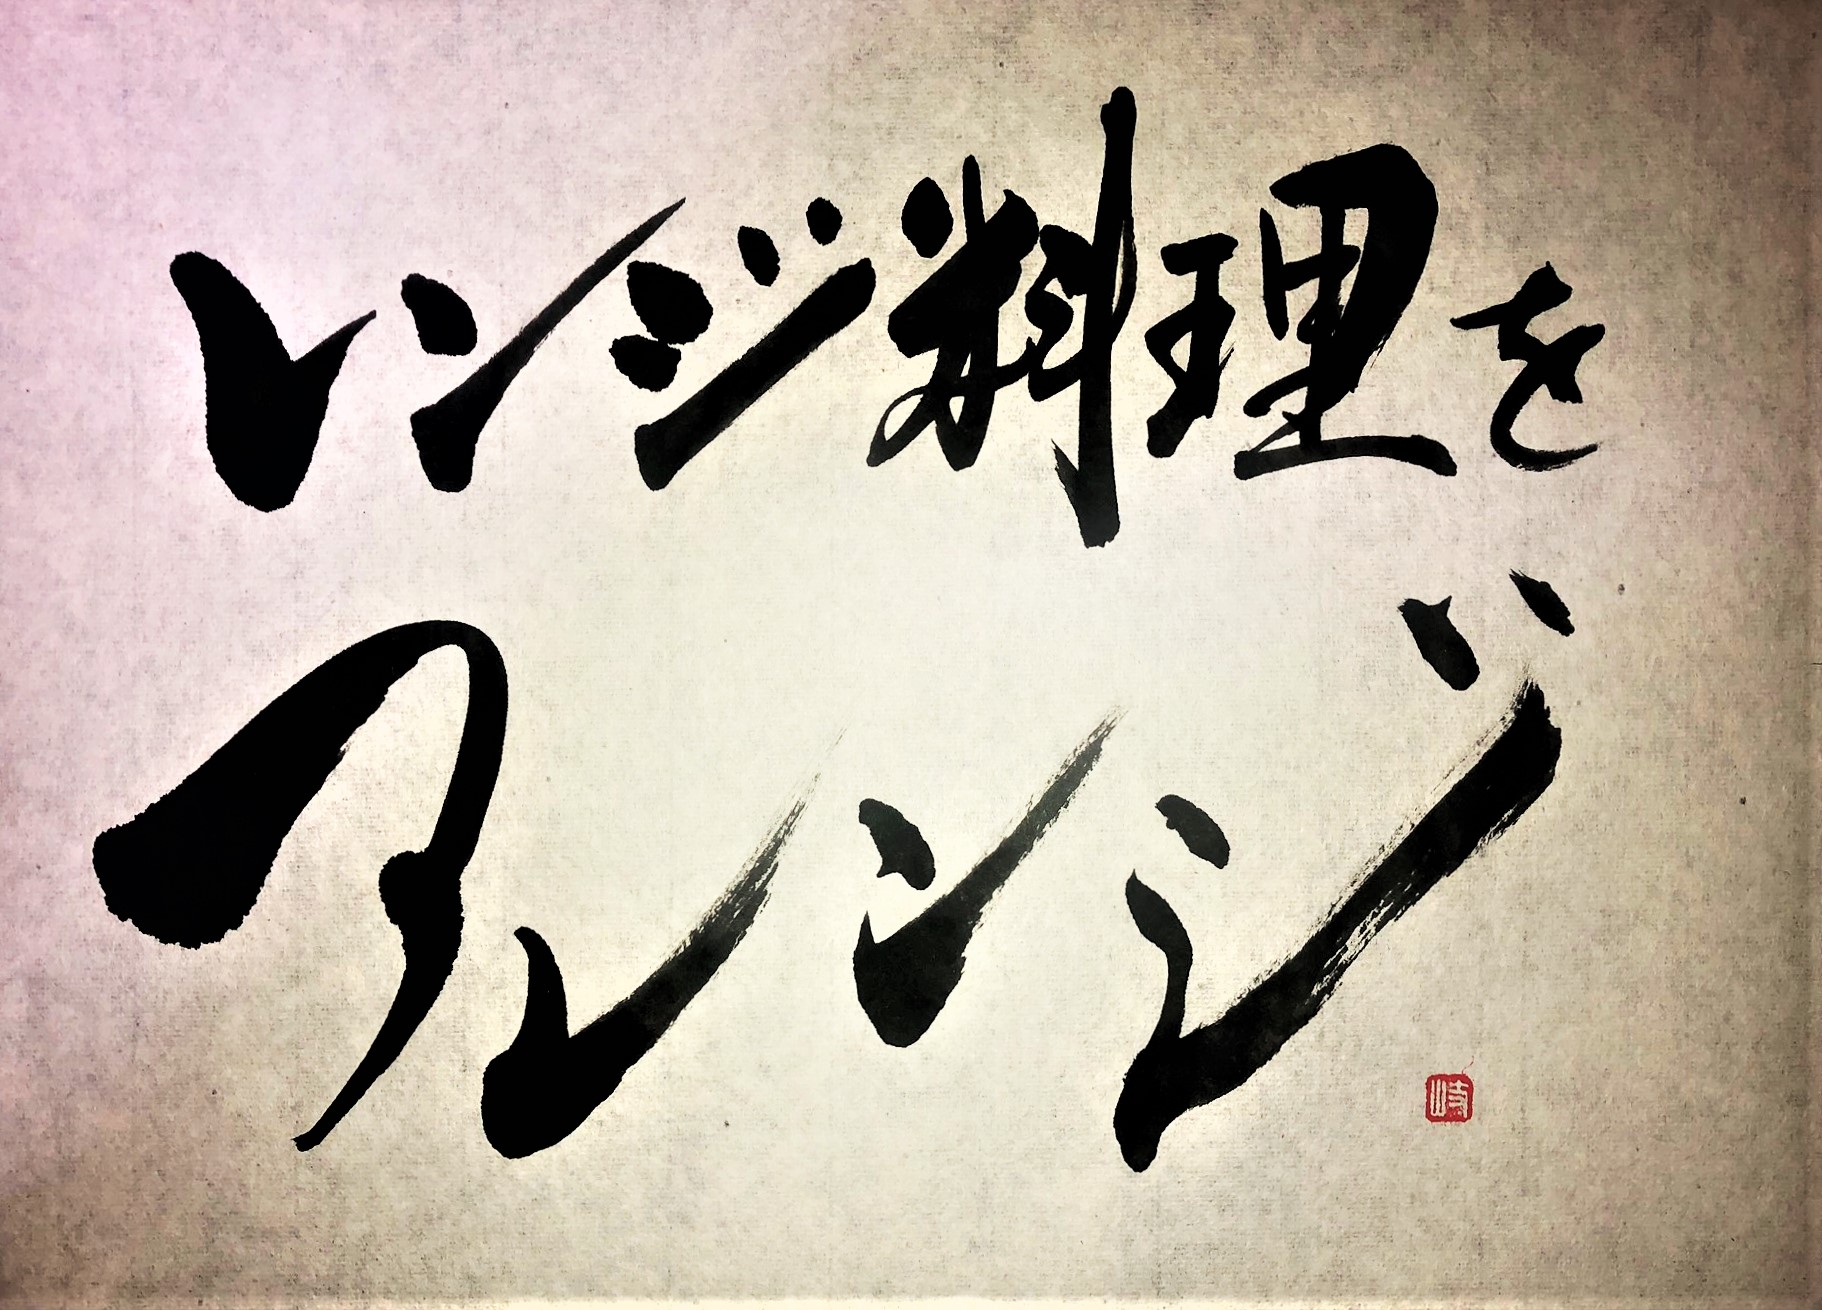 レンジ料理を
アレンジ
岐